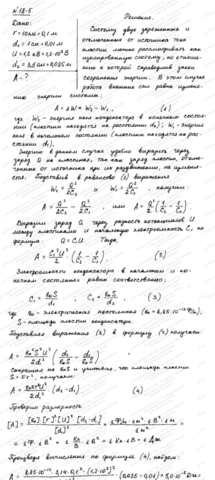 №18-5
Дано:
r = 10см = 0,1 м
d₁ = 1см = 0,01 м
U = 1,2 кВ = 1,2·10³ В
d₂ = 3,5см = 0,035 м
A - ?
Решение.
Систему двух заряженных и
отключенных от источника тока
пластин можно рассматривать как
изолированную систему, по отноше-
нию к которой справедлив закон
сохранения энергии. В этом случае
работа внешних сил равна измене-
нию энергии системы,
A = ΔW = W₂ - W₁ , (1)
где W₂ - энергия поля конденсатора в конечном состоя-
нии (пластины находятся на расстоянии d₂); W₁ - энергия
в начальном состоянии (пластины находятся на рас-
стоянии d₁).
Энергию в данном случае удобно выразить через
заряд Q на пластинах, так как заряд пластин, отключен-
ных от источника при их раздвижении, не изменяет-
ся. Подставив в равенство (1) выражения
W₂ = Q²/2C₂ и W₁ = Q²/2C₁, получим:
A = Q²/2C₂ - Q²/2C₁, или A = Q²/2 (1/C₂ - 1/C₁).
Выразим заряд Q через разность потенциалов U
между пластинами и начальную электроемкость C₁ по
формуле Q = C₁U. Тогда,
A = C₁²U²/2 (1/C₂ - 1/C₁). (2)
Электроемкости конденсатора в начальном и ко-
нечном состоянии равны соответственно:
C₁ = ε₀S/d₁ C₂ = ε₀S/d₂, (3)
S - площадь пластин конденсатора.
Подставляя выражения (3) в формулу (2) получаем:
A = ε₀²S²U²/2d₁² (d₂/ε₀S - d₁/ε₀S).
Сокращая на ε₀S и учитывая, что площадь пластин
S = πr², получаем:
A = ε₀πr²U²/2d₁² · (d₂-d₁) (4)
Проверим размерность.
Произведя вычисления по формуле (4), найдем: